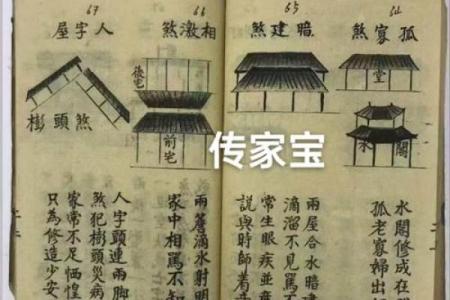 64
孤寡煞
堂
水閣
水閣修成在
孤老寡婦出
65
暗建煞
兩屋合水暗
滴溜不見
常生眼疾並
說與時師着
66
相激煞
後宅
前宅
兩簷滴水射明
家中相罵不知
67
人字屋
頭煞
人字頭連兩脚
煞犯頭災病
家常不足恓惶
只為修造少安
传家宝